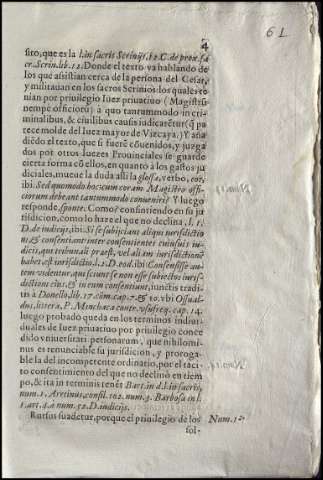 61
4
sito, que es la l. in sacris Scrinijs, 12. C. de prox. sa
cr. Scrin. lib. 12. Donde el texto va hablando de
los que assistian cerca de la persona del Cesar,
y militauan en los sacros Scrinios los quales te
nian por priuilegio Iuez priuatiuo (Magistrũ
nempè officiorũ) à quo tantummodo in cri-
minalibus, & ciuilibus causis iudicarẽtur (q̃ pa
rece molde del Iuez mayor de Vizcaya.) Y aña
diẽdo el texto, que si fuerẽ cõuenidos, y juzga
dos por otros Iuezes Prouinciales se guarde
cierta forma cõ ellos, en quanto à los gastos ju
diciales, mueue la duda assi la glossa, verbo,
ibi. Sed quomodo hoc cum coram Magistro offi-
ciorum debeant tantummodo conueniri? Y luego
responde, sponte. Como? consintiendo en su ju
risdicion, como lo haze el que no declina, l. 1.
D. de iudicijs, ibi. Si se subijciant aliqui iurisdictio
ni, & consentiant inter consentientes cuiusuis iu-
dicis, qui tribunali præest, vel aliam iurisdictionẽ
habet, est iurisdictio. l. 2. D. eod. ibi Consensisse au-
tem videntur, qui sciunt se non esse subiectos iuris-
dictioni eius, & in eum consentiunt, iunctis tradi-
tis à Donello, lib. 17. cùm cap. 7. & 10. vbi Osuald-
dus, littera, P. Minchaca contr. vsufreq. cap. 14.
luego probado queda en los terminos indiui-
duales de Iuez priuatiuo por priuilegio conce
dido vniuersitati personarum, que nihilomi-
nus es renunciable su jurisdicion, y proroga-
ble la del incompetente ordinario, por el taci-
to consentimiento del que no declinò en tiem
po, & ita in terminis tenẽt Bart. in d. l. in sacris,
num. 1. Aretinus, consil. 102. num. 3. Barbosa in l.
1. art. 4. à num. 52. D. iudicijs.
Rursus suadetur, porque el priuilegio de los
Num. 12
sol-